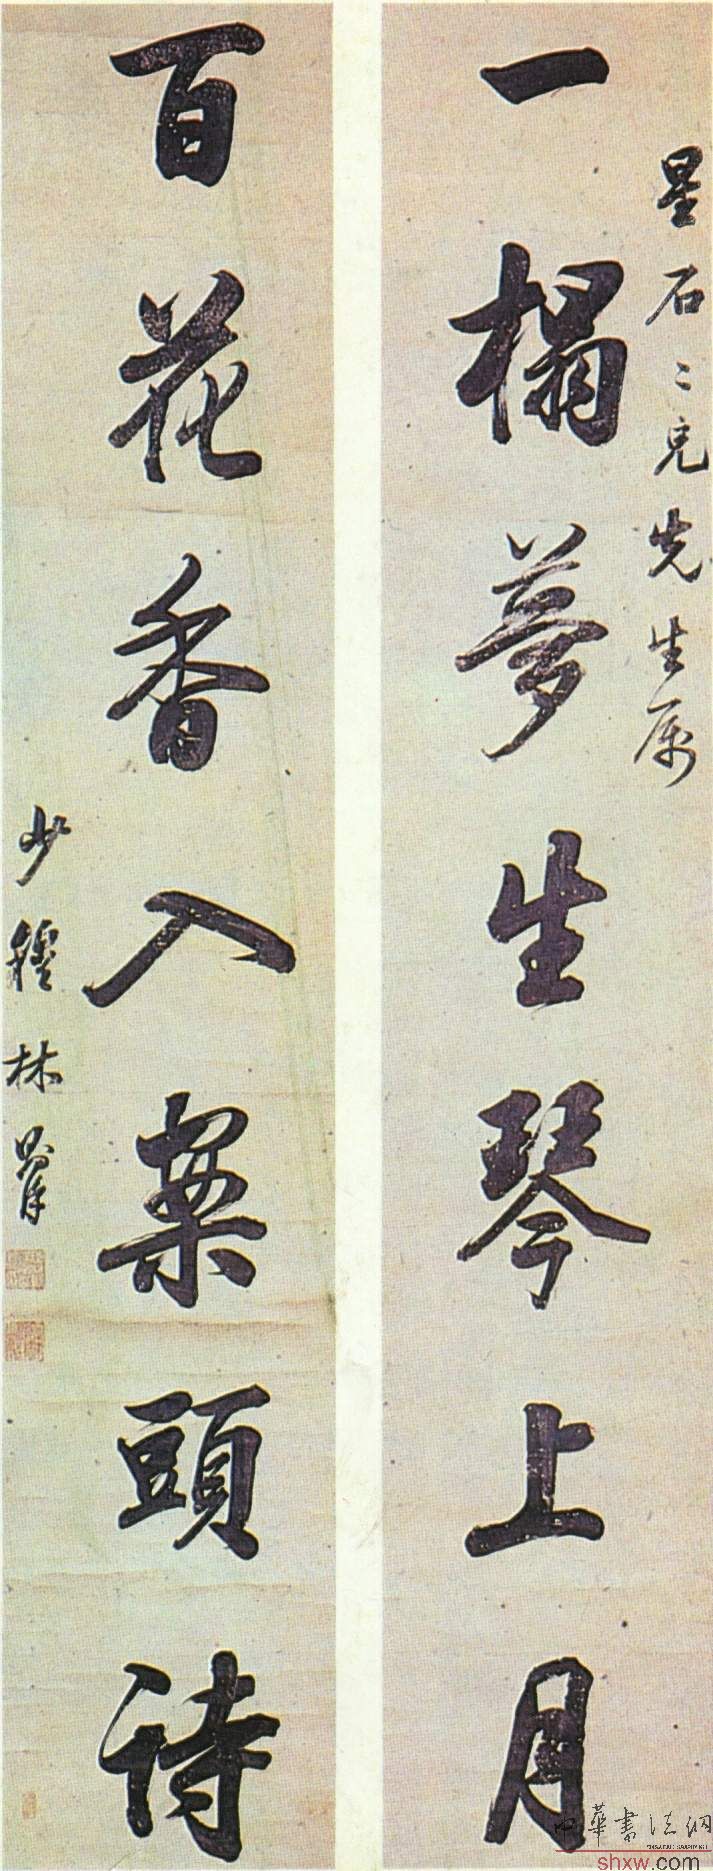 星石二兄先生属
一榻梦生琴上月
百花香入案頭诗
少穆林則徐
中華書法網
shxw.com